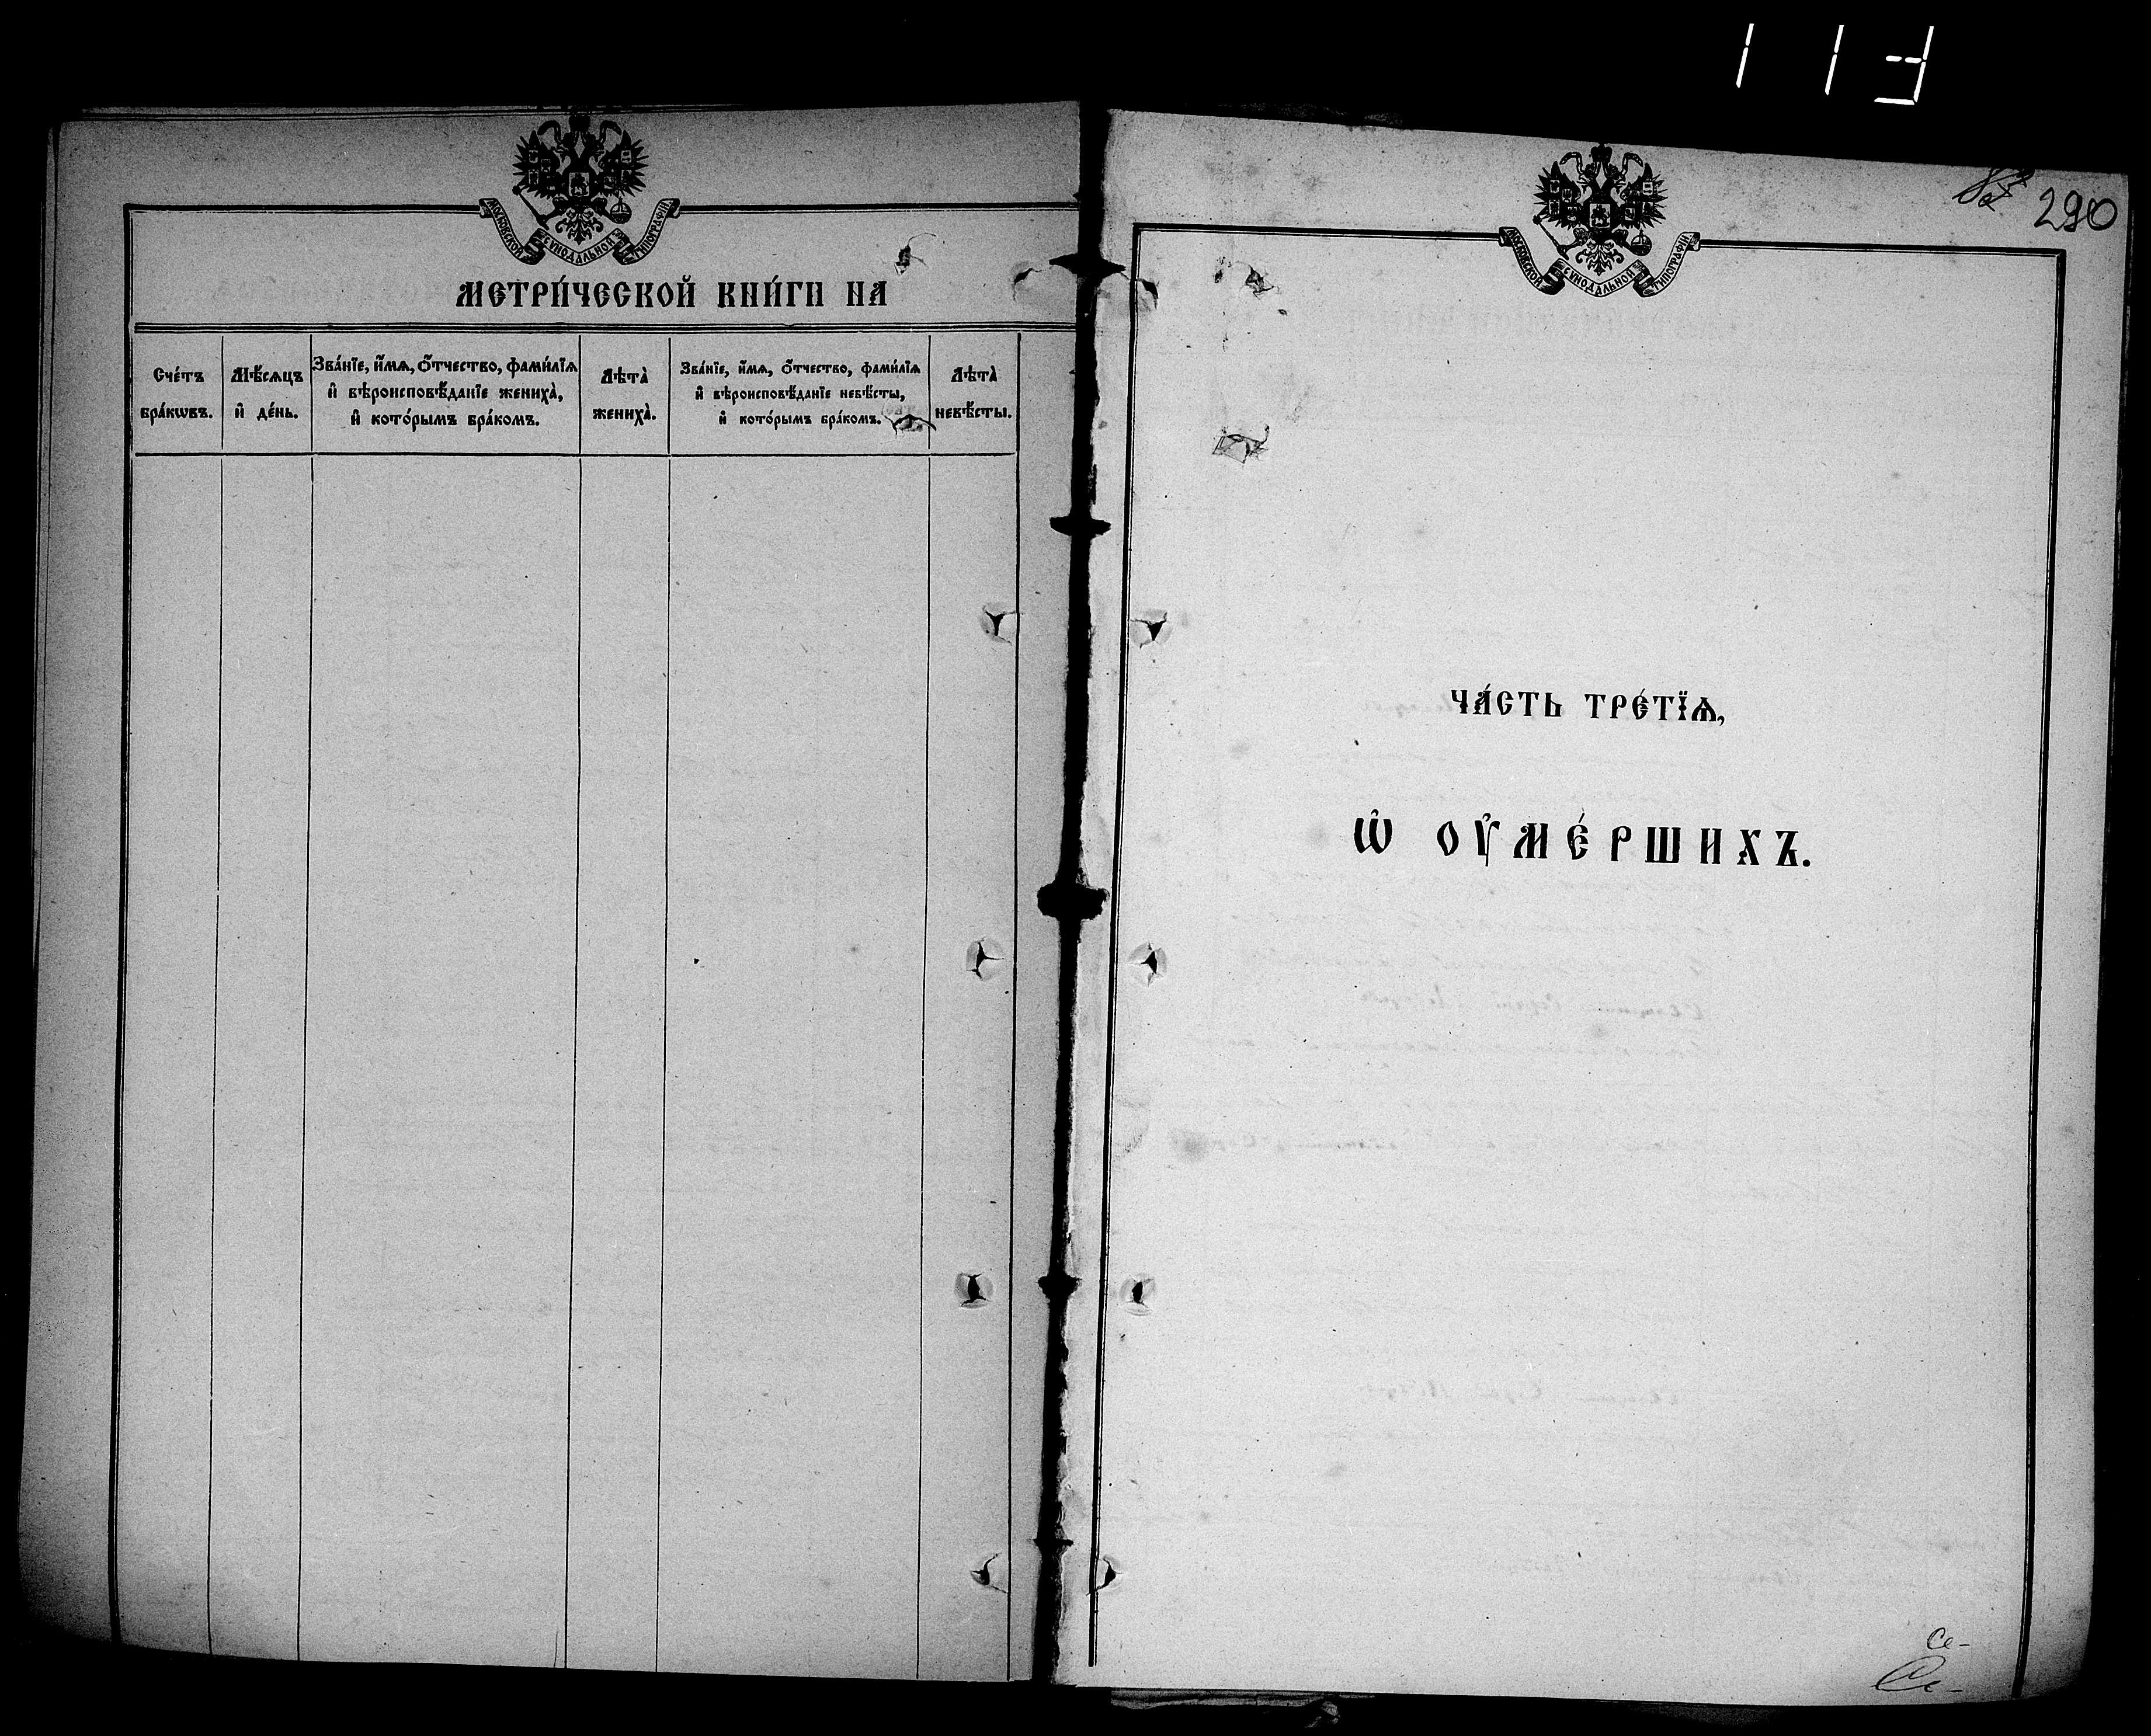 113
МОСКОВСКОЙ СѴНОДАЛЬНОЙ ТИПОГРАФІИ
МЕТРИ́ЧЕСКОЙ КНИ́ГИ НА
Сче́тъ бра́кѡвъ.
Мѣ́сѧцъ и҆ де́нь.
Зва́нїе, и҆́мѧ, ѻ҆́тчество, фами́лїѧ и҆ вѣроисповѣ́данїе жениха̀, и҆ кото́рымъ бра́комъ.
Лѣта̀ жениха̀.
Зва́нїе, и҆́мѧ, ѻ҆́тчество, фами́лїѧ и҆ вѣроисповѣ́данїе невѣ́сты, и҆ кото́рымъ бра́комъ.
Лѣта̀ невѣ́сты.
290
МОСКОВСКОЙ СѴНОДАЛЬНОЙ ТИПОГРАФІИ
ЧА́СТЬ ТРЕ́ТЇѦ,
Ѡ҆ ОУ҆МЕ́РШИХЪ.
Се-